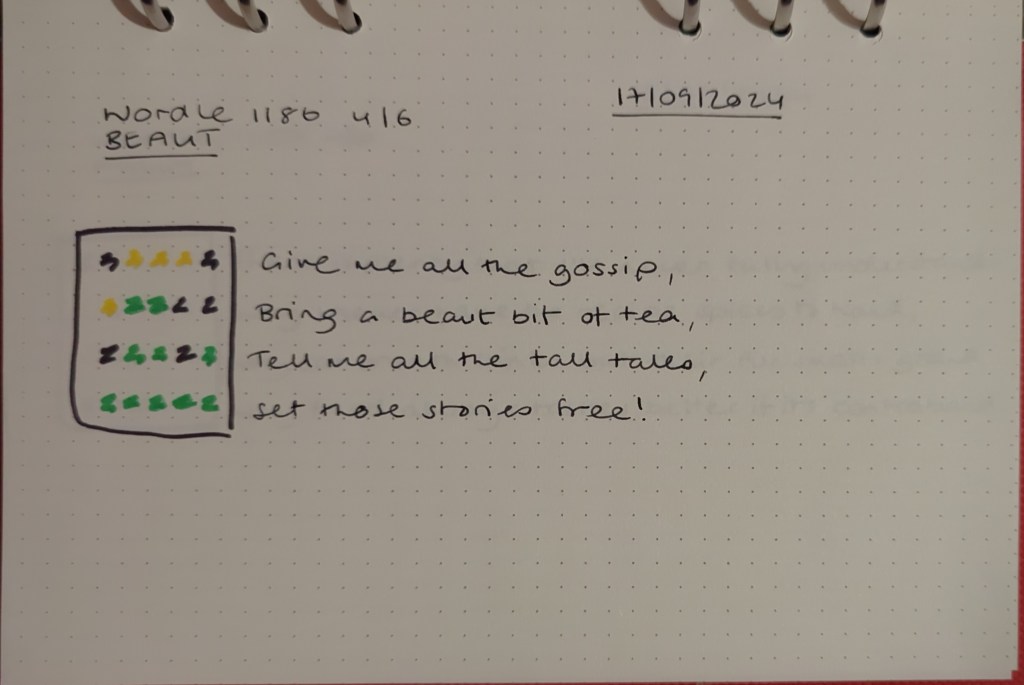 Wordle 1186 4/6
17/09/2024
BEAUT
Give me all the gossip,
Bring a beaut bit of tea,
Tell me all the tall tales,
set those stories free!